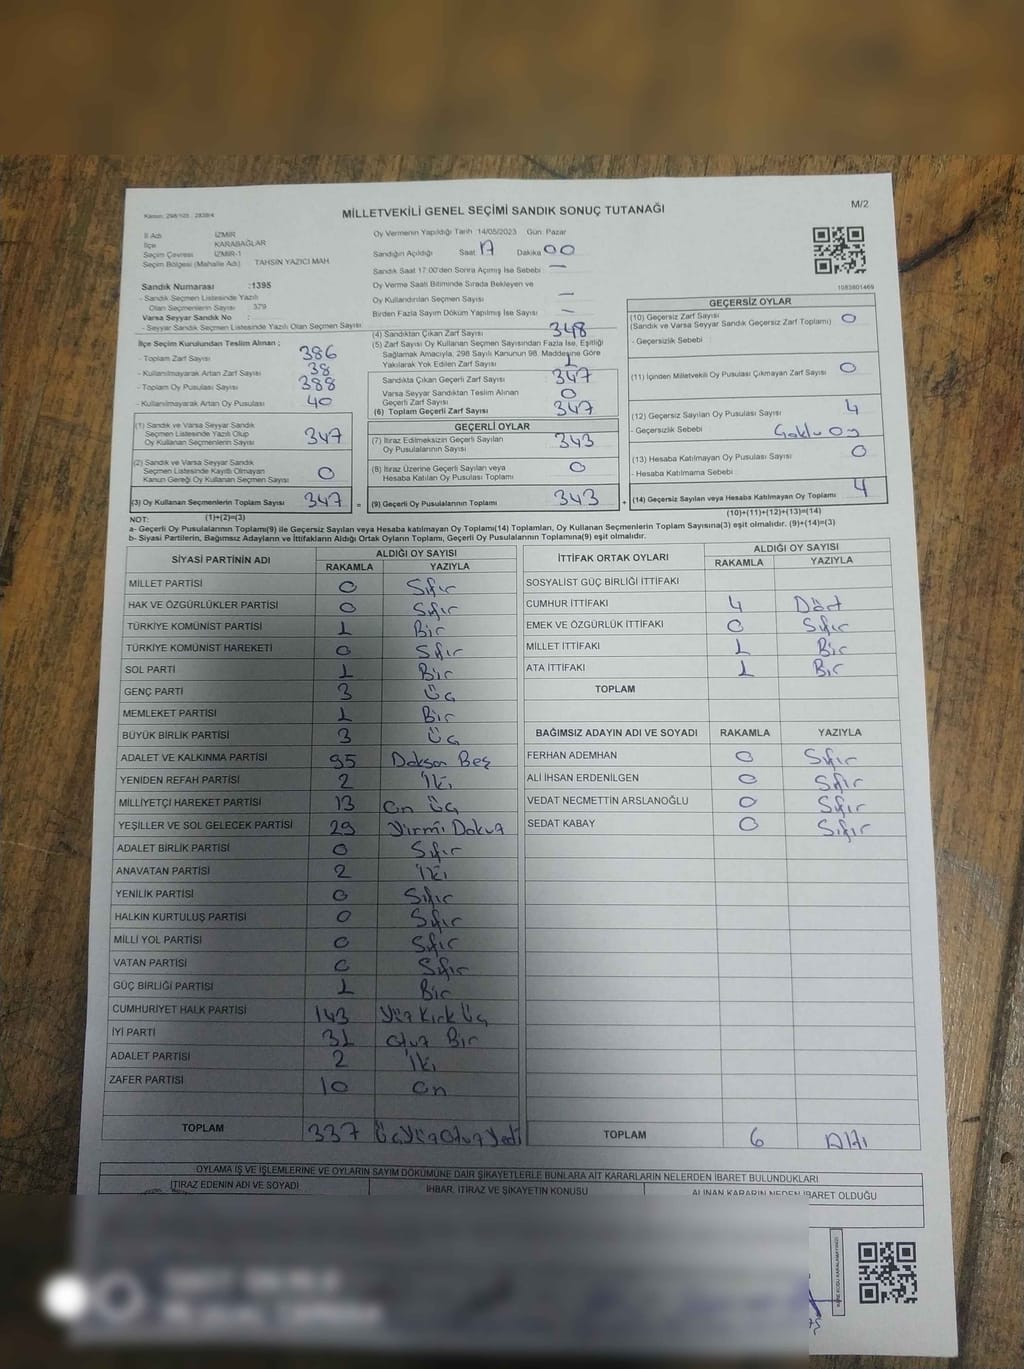 Kanun: 298/105 : 2839/4
MİLLETVEKİLİ GENEL SEÇİMİ SANDIK SONUÇ TUTANAĞI
M/2
İl Adı İZMİR
İlçe KARABAĞLAR
Seçim Çevresi İZMİR-1
Seçim Bölgesi (Mahalle Adı) TAHSİN YAZICI MAH.
Sandık Numarası :1395
- Sandık Seçmen Listesinde Yazılı
Olan Seçmenlerin Sayısı : 379
Varsa Seyyar Sandık No :
- Seyyar Sandık Seçmen Listesinde Yazılı Olan Seçmen Sayısı
İlçe Seçim Kurulundan Teslim Alınan ;
- Toplam Zarf Sayısı 386
- Kullanılmayarak Artan Zarf Sayısı 38
- Toplam Oy Pusulası Sayısı 388
- Kullanılmayarak Artan Oy Pusulası 40
(1) Sandık ve Varsa Seyyar Sandık
Seçmen Listesinde Yazılı Olup
Oy Kullanan Seçmenlerin Sayısı 347
(2) Sandık ve Varsa Seyyar Sandık
Seçmen Listesinde Kayıtlı Olmayan
Kanun Gereği Oy Kullanan Seçmen Sayısı 0
(3) Oy Kullanan Seçmenlerin Toplam Sayısı 347 =
(1)+(2)=(3)
Oy Vermenin Yapıldığı Tarih :14/05/2023 Gün: Pazar
Sandığın Açıldığı Saat 17 Dakika 00
Sandık Saat 17:00'den Sonra Açılmış İse Sebebi : —
Oy Verme Saati Bitiminde Sırada Bekleyen ve
Oy Kullandırılan Seçmen Sayısı —
Birden Fazla Sayım Döküm Yapılmış İse Sayısı —
(4) Sandıktan Çıkan Zarf Sayısı 348
(5) Zarf Sayısı Oy Kullanan Seçmen Sayısından Fazla İse, Eşitliği
Sağlamak Amacıyla, 298 Sayılı Kanunun 98. Maddesine Göre
Yakılarak Yok Edilen Zarf Sayısı 1
Sandıkta Çıkan Geçerli Zarf Sayısı 347
Varsa Seyyar Sandıktan Teslim Alınan
Geçerli Zarf Sayısı 0
(6) Toplam Geçerli Zarf Sayısı 347
GEÇERLİ OYLAR
(7) İtiraz Edilmeksizin Geçerli Sayılan
Oy Pusulasının Sayısı 343
(8) İtiraz Üzerine Geçerli Sayılan veya
Hesaba Katılan Oy Pusulası Toplamı 0
(9) Geçerli Oy Pusulalarının Toplamı 343 +
1083801469
GEÇERSİZ OYLAR
(10) Geçersiz Zarf Sayısı
(Sandık ve Varsa Seyyar Sandık Geçersiz Zarf Toplamı) 0
- Geçersizlik Sebebi :
(11) İçinden Milletvekili Oy Pusulası Çıkmayan Zarf Sayısı 0
(12) Geçersiz Sayılan Oy Pusulası Sayısı 4
- Geçersizlik Sebebi : Çoklu Oy
(13) Hesaba Katılmayan Oy Pusulası Sayısı 0
- Hesaba Katılmama Sebebi :
(14) Geçersiz Sayılan veya Hesaba Katılmayan Oy Toplamı 4
(10)+(11)+(12)+(13)=(14)
NOT:
a- Geçerli Oy Pusulalarının Toplamı(9) ile Geçersiz Sayılan veya Hesaba katılmayan Oy Toplamı(14) Toplamları, Oy Kullanan Seçmenlerin Toplam Sayısına(3) eşit olmalıdır. (9)+(14)=(3)
b- Siyasi Partilerin, Bağımsız Adayların ve İttifakların Aldığı Ortak Oyların Toplamı, Geçerli Oy Pusulalarının Toplamına(9) eşit olmalıdır.
SİYASİ PARTİNİN ADI ALDIĞI OY SAYISI
RAKAMLA YAZIYLA
MİLLET PARTİSİ 0 Sıfır
HAK VE ÖZGÜRLÜKLER PARTİSİ 0 Sıfır
TÜRKİYE KOMÜNİST PARTİSİ 1 Bir
TÜRKİYE KOMÜNİST HAREKETİ 0 Sıfır
SOL PARTİ 1 Bir
GENÇ PARTİ 3 Üç
MEMLEKET PARTİSİ 1 Bir
BÜYÜK BİRLİK PARTİSİ 3 Üç
ADALET VE KALKINMA PARTİSİ 95 Doksan Beş
YENİDEN REFAH PARTİSİ 2 İki
MİLLİYETÇİ HAREKET PARTİSİ 13 On Üç
YEŞİLLER VE SOL GELECEK PARTİSİ 29 Yirmi Dokuz
ADALET BİRLİK PARTİSİ 0 Sıfır
ANAVATAN PARTİSİ 2 İki
YENİLİK PARTİSİ 0 Sıfır
HALKIN KURTULUŞ PARTİSİ 0 Sıfır
MİLLİ YOL PARTİSİ 0 Sıfır
VATAN PARTİSİ 0 Sıfır
GÜÇ BİRLİĞİ PARTİSİ 1 Bir
CUMHURİYET HALK PARTİSİ 143 Yüz Kırk Üç
İYİ PARTİ 31 Otuz Bir
ADALET PARTİSİ 2 İki
ZAFER PARTİSİ 10 On
TOPLAM 337 Üç Yüz Otuz Yedi
İTTİFAK ORTAK OYLARI ALDIĞI OY SAYISI
RAKAMLA YAZIYLA
SOSYALİST GÜÇ BİRLİĞİ İTTİFAKI
CUMHUR İTTİFAKI 4 Dört
EMEK VE ÖZGÜRLÜK İTTİFAKI 0 Sıfır
MİLLET İTTİFAKI 1 Bir
ATA İTTİFAKI 1 Bir
TOPLAM
BAĞIMSIZ ADAYIN ADI VE SOYADI RAKAMLA YAZIYLA
FERHAN ADEMHAN 0 Sıfır
ALİ İHSAN ERDENİLGEN 0 Sıfır
VEDAT NECMETTİN ARSLANOĞLU 0 Sıfır
SEDAT KABAY 0 Sıfır
TOPLAM 6 Altı
OYLAMA İŞ VE İŞLEMLERİNE VE OYLARIN SAYIM DÖKÜMÜNE DAİR ŞİKAYETLERLE BUNLARA AİT KARARLARIN NELERDEN İBARET BULUNDUKLARI
İTİRAZ EDENİN ADI VE SOYADI İHBAR, İTİRAZ VE ŞİKAYETİN KONUSU ALINAN KARARIN NEDEN İBARET OLDUĞU